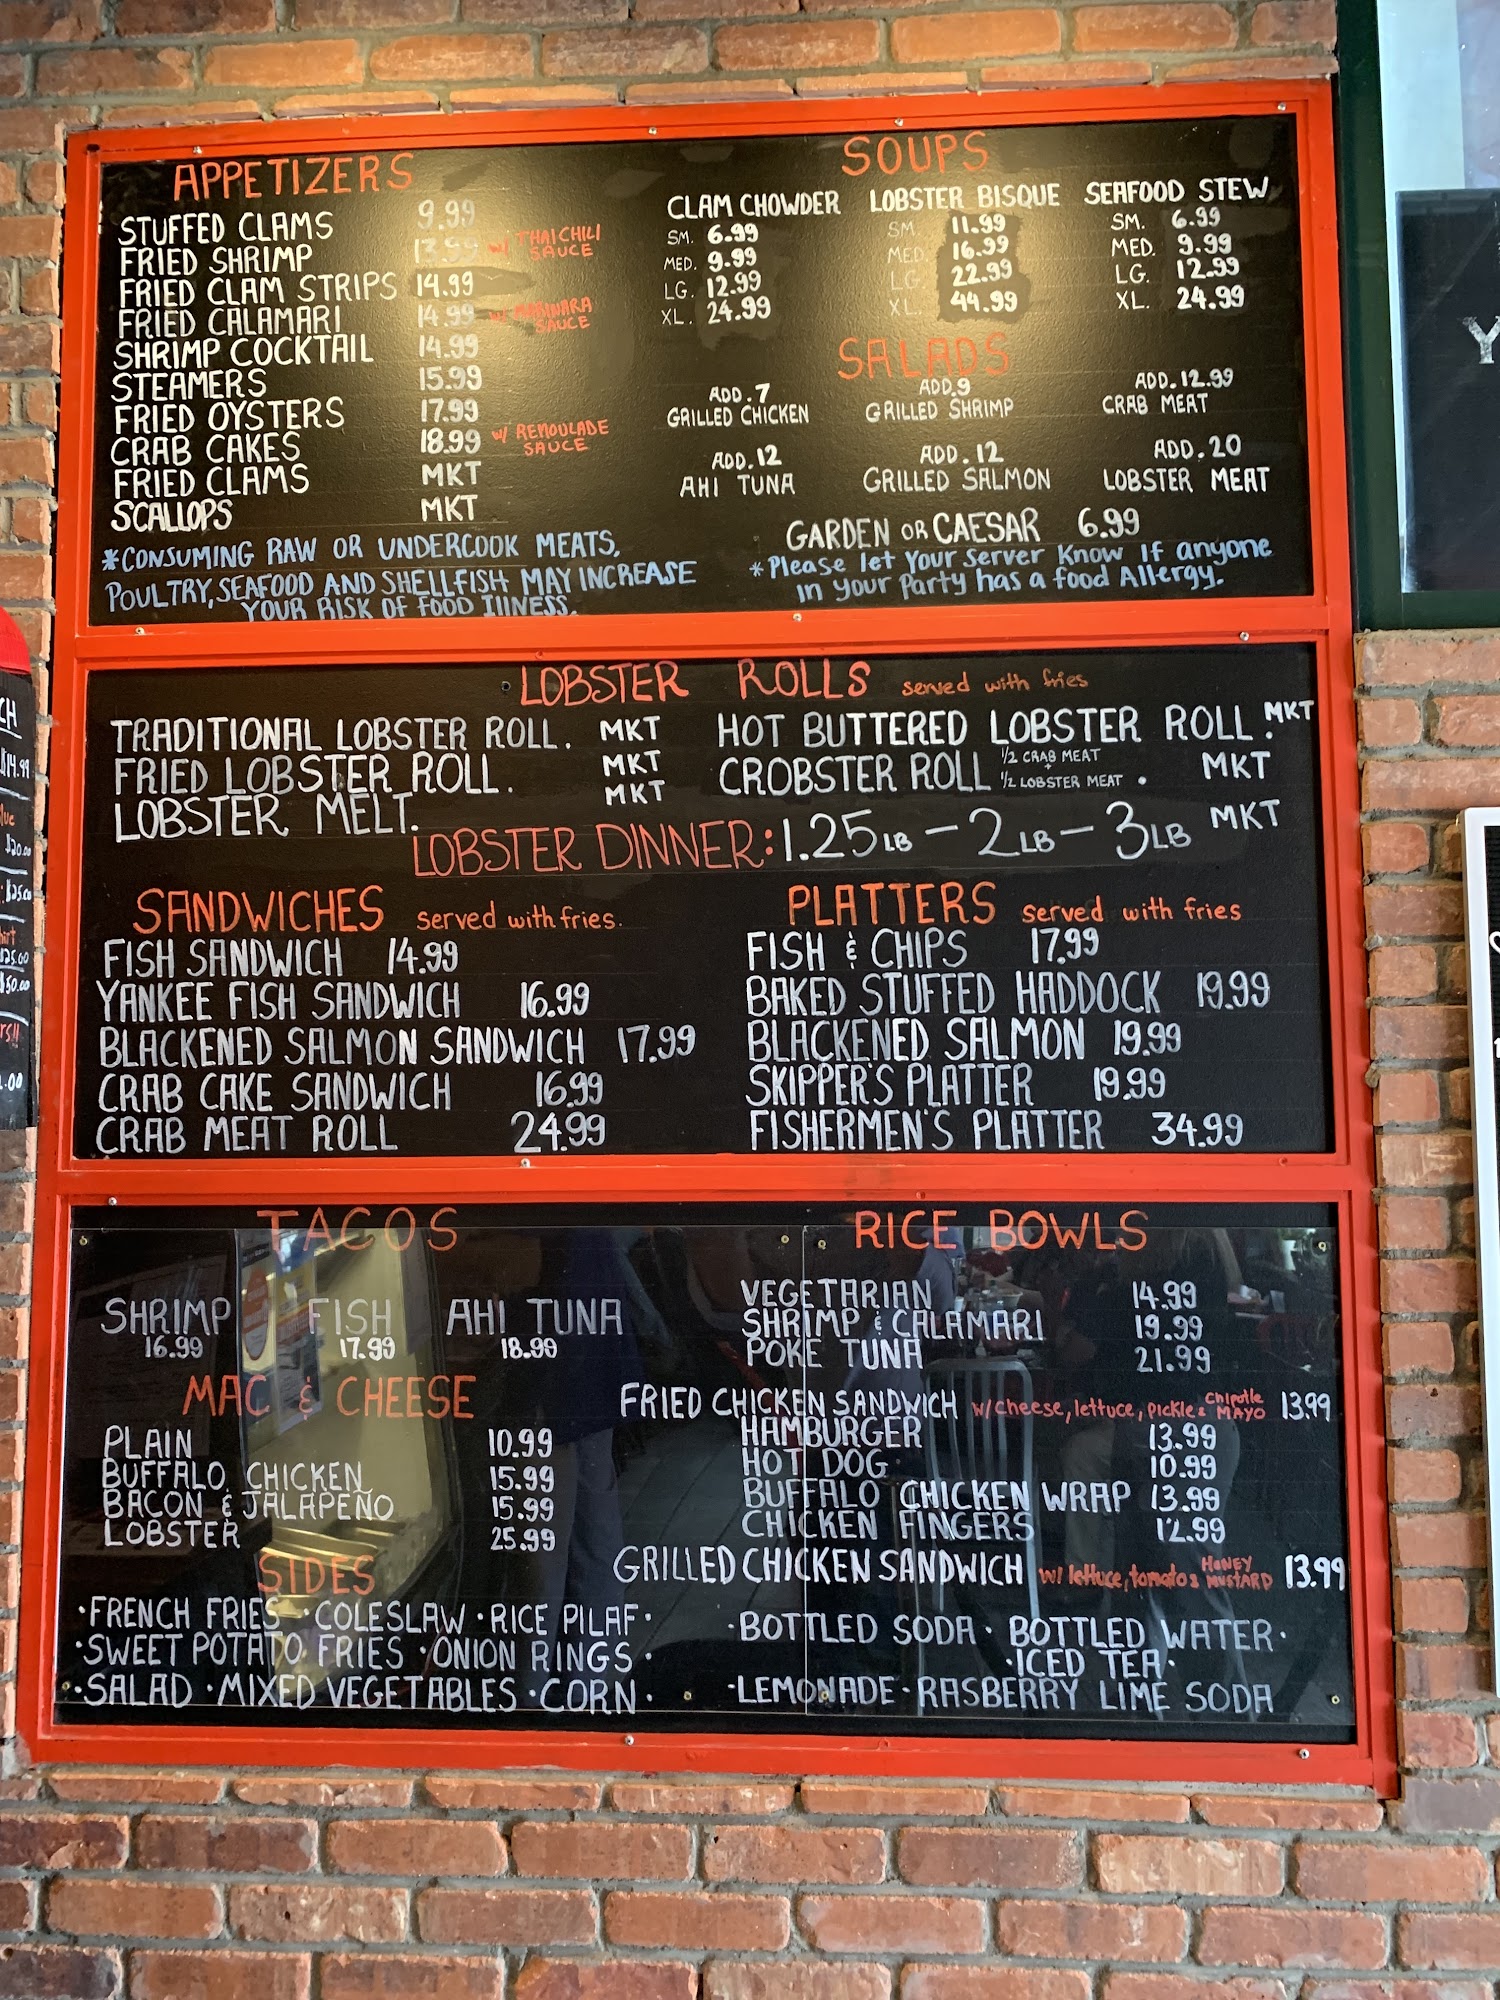 APPETIZERS
STUFFED CLAMS 9.99
FRIED SHRIMP 13.99 w/ THAI CHILI SAUCE
FRIED CLAM STRIPS 14.99
FRIED CALAMARI 14.99 w/ MARINARA SAUCE
SHRIMP COCKTAIL 14.99
STEAMERS 15.99
FRIED OYSTERS 17.99
CRAB CAKES 18.99 w/ REMOULADE SAUCE
FRIED CLAMS MKT
SCALLOPS MKT
*CONSUMING RAW OR UNDERCOOK MEATS,
POULTRY, SEAFOOD AND SHELLFISH MAY INCREASE
YOUR RISK OF FOOD IllNESS.
SOUPS
CLAM CHOWDER LOBSTER BISQUE SEAFOOD STEW
SM. 6.99 SM. 11.99 SM. 6.99
MED. 9.99 MED. 16.99 MED. 9.99
LG. 12.99 LG. 22.99 LG. 12.99
XL. 24.99 XL. 44.99 XL. 24.99
SALADS
ADD.7 ADD.9 ADD.12.99
GRILLED CHICKEN GRILLED SHRIMP CRAB MEAT
ADD.12 ADD.12 ADD.20
AHI TUNA GRILLED SALMON LOBSTER MEAT
GARDEN OR CAESAR 6.99
*Please let Your Server Know If anyone
in your Party has a food Allergy.
LOBSTER ROLLS served with fries
TRADITIONAL LOBSTER ROLL. MKT HOT BUTTERED LOBSTER ROLL. MKT
FRIED LOBSTER ROLL. MKT CROBSTER ROLL 1/2 CRAB MEAT + 1/2 LOBSTER MEAT . MKT
LOBSTER MELT. MKT
LOBSTER DINNER: 1.25LB - 2LB - 3LB MKT
SANDWICHES served with fries.
FISH SANDWICH 14.99
YANKEE FISH SANDWICH 16.99
BLACKENED SALMON SANDWICH 17.99
CRAB CAKE SANDWICH 16.99
CRAB MEAT ROLL 24.99
PLATTERS served with fries
FISH & CHIPS 17.99
BAKED STUFFED HADDOCK 19.99
BLACKENED SALMON 19.99
SKIPPER'S PLATTER 19.99
FISHERMEN'S PLATTER 34.99
TACOS
SHRIMP FISH AHI TUNA
16.99 17.99 18.99
MAC & CHEESE
PLAIN 10.99
BUFFALO CHICKEN 15.99
BACON & JALAPEÑO 15.99
LOBSTER 25.99
SIDES
·FRENCH FRIES ·COLESLAW ·RICE PILAF·
·SWEET POTATO FRIES ·ONION RINGS ·
·SALAD ·MIXED VEGETABLES ·CORN ·
RICE BOWLS
VEGETARIAN 14.99
SHRIMP & CALAMARI 19.99
POKE TUNA 21.99
FRIED CHICKEN SANDWICH w/ cheese, lettuce, pickle & Chipotle MAYO 13.99
HAMBURGER 13.99
HOT DOG 10.99
BUFFALO CHICKEN WRAP 13.99
CHICKEN FINGERS 12.99
GRILLED CHICKEN SANDWICH w/ lettuce, tomato & HONEY MUSTARD 13.99
·BOTTLED SODA · BOTTLED WATER·
·ICED TEA·
·LEMONADE ·RASBERRY LIME SODA